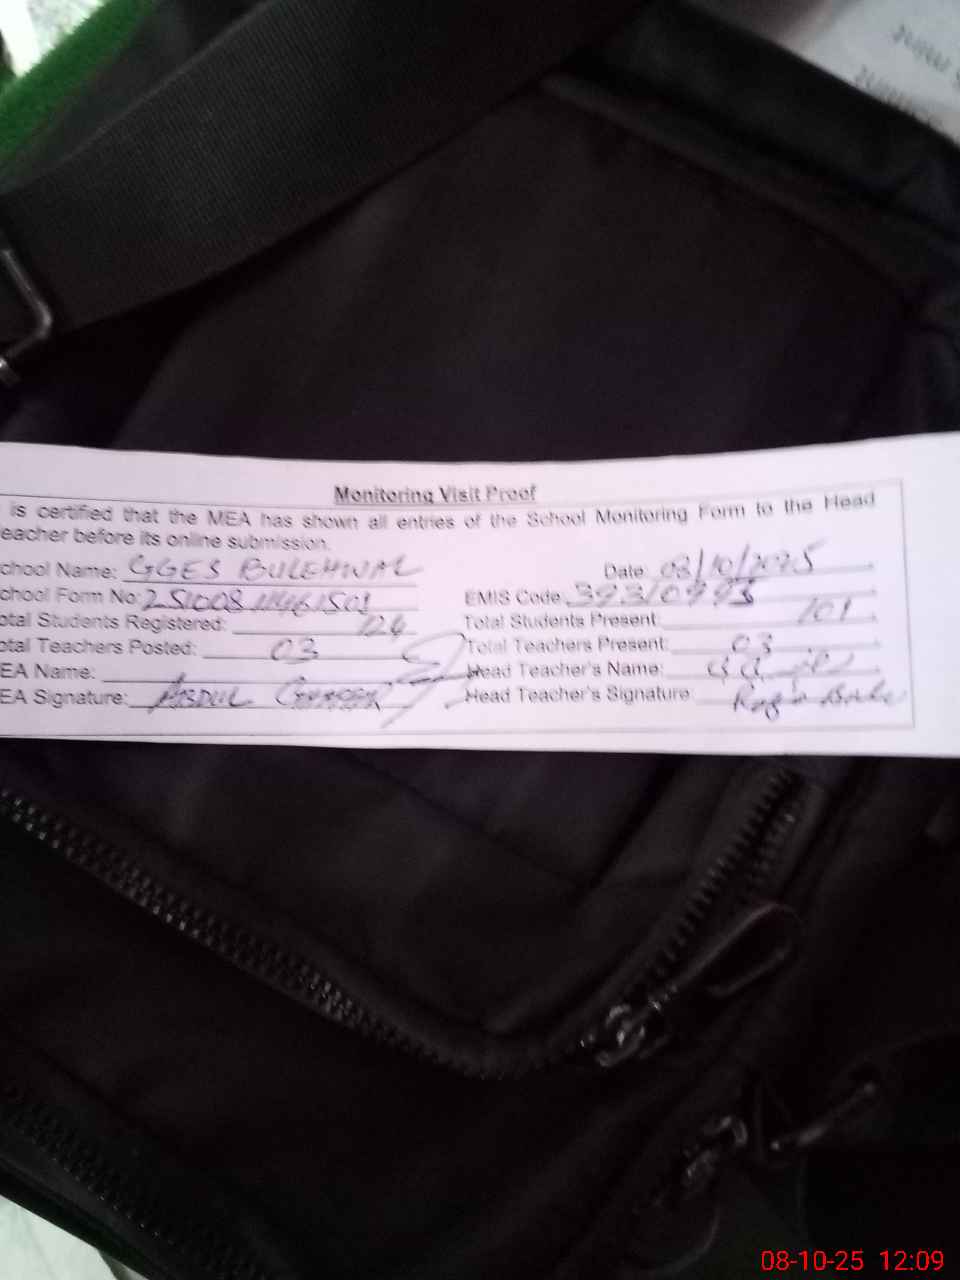 Monitoring Visit Proof
is certified that the MEA has shown all entries of the School Monitoring Form to the Head
eacher before its online submission.
chool Name: GGES BULEHWAL Date: 08/10/2025
chool Form No: EMIS Code
otal Students Registered: 124 Total Students Present: 101
otal Teachers Posted: 03 Total Teachers Present: 03
EA Name: Head Teacher's Name:
EA Signature: ABDUL Head Teacher's Signature
08-10-25 12:09